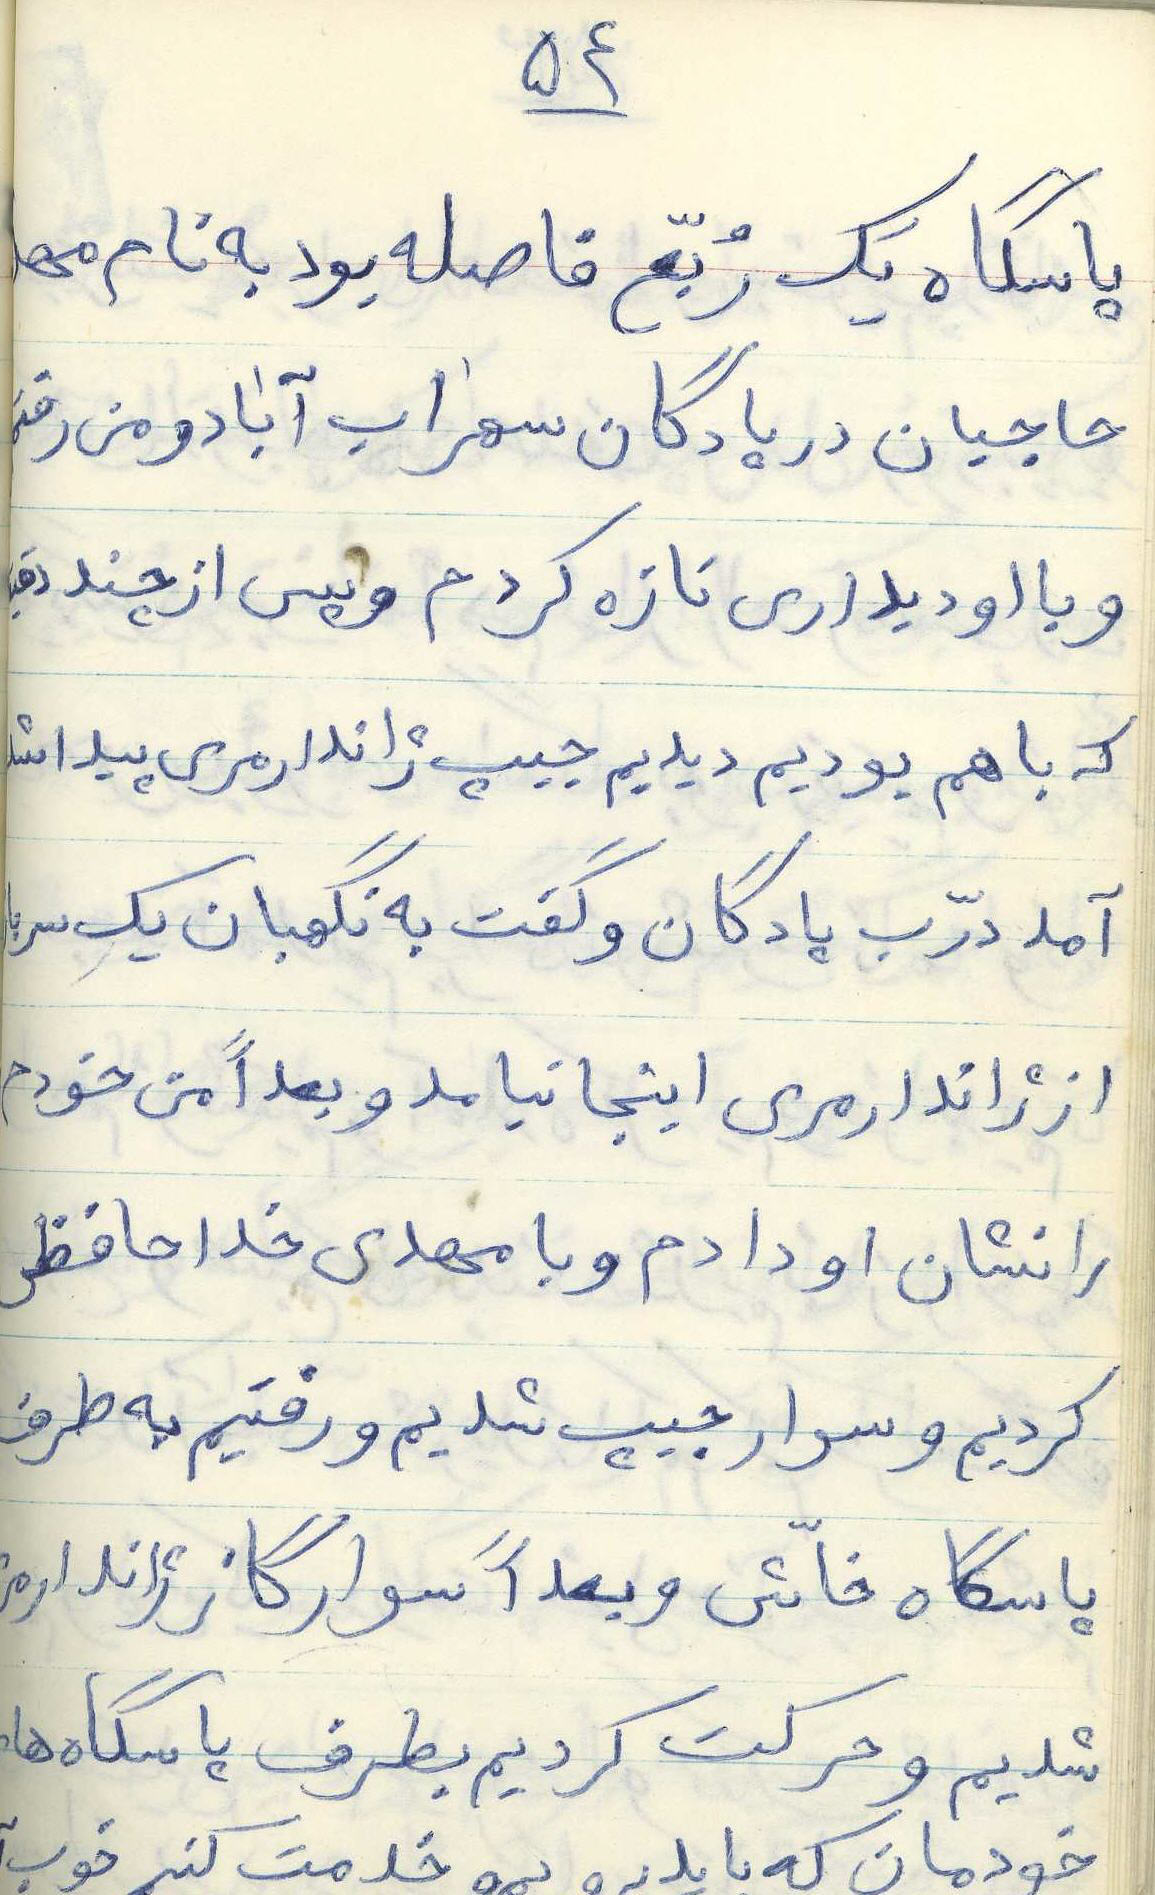 ۵۴
پاسگاه یک رُبّع فاصله بود به نام مهد
حاجیان در پادگان سهراب آباد و من رفتم
و با او دیداری تازه کردم و پس از چند دقیقه
که با هم بودیم دیدیم جیپ ژاندارمری پیدا شد
آمد درّب پادگان و گفت به نگهبان یک سرباز
از ژاندارمری اینجا نیامد و بعداً من خودم
را نشان او دادم و با مهدی خداحافظی
کردیم و سوار جیپ شدیم و رفتیم به طرف
پاسگاه خاّش و بعداً سوار گاز ژاندارمر
شدیم و حرکت کردیم بطرف پاسگاه های
خودمان که باید خدمت کنیم خوب